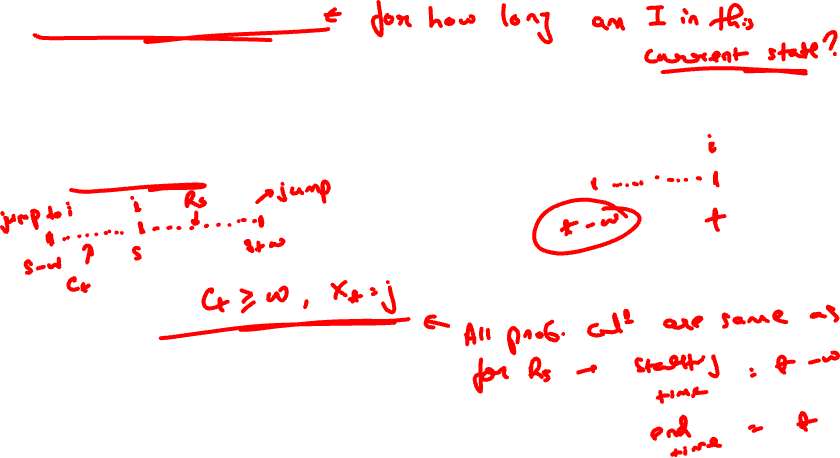 ← for how long am I in this
current state?
jump to i
i
Rs
→ jump
s-w
s
s+w
Ct
i
t-w
t
Ct ≥ w, Xt = j
← All prob. calⁿ are same as
for Rs → starting time = t-w
end time = t